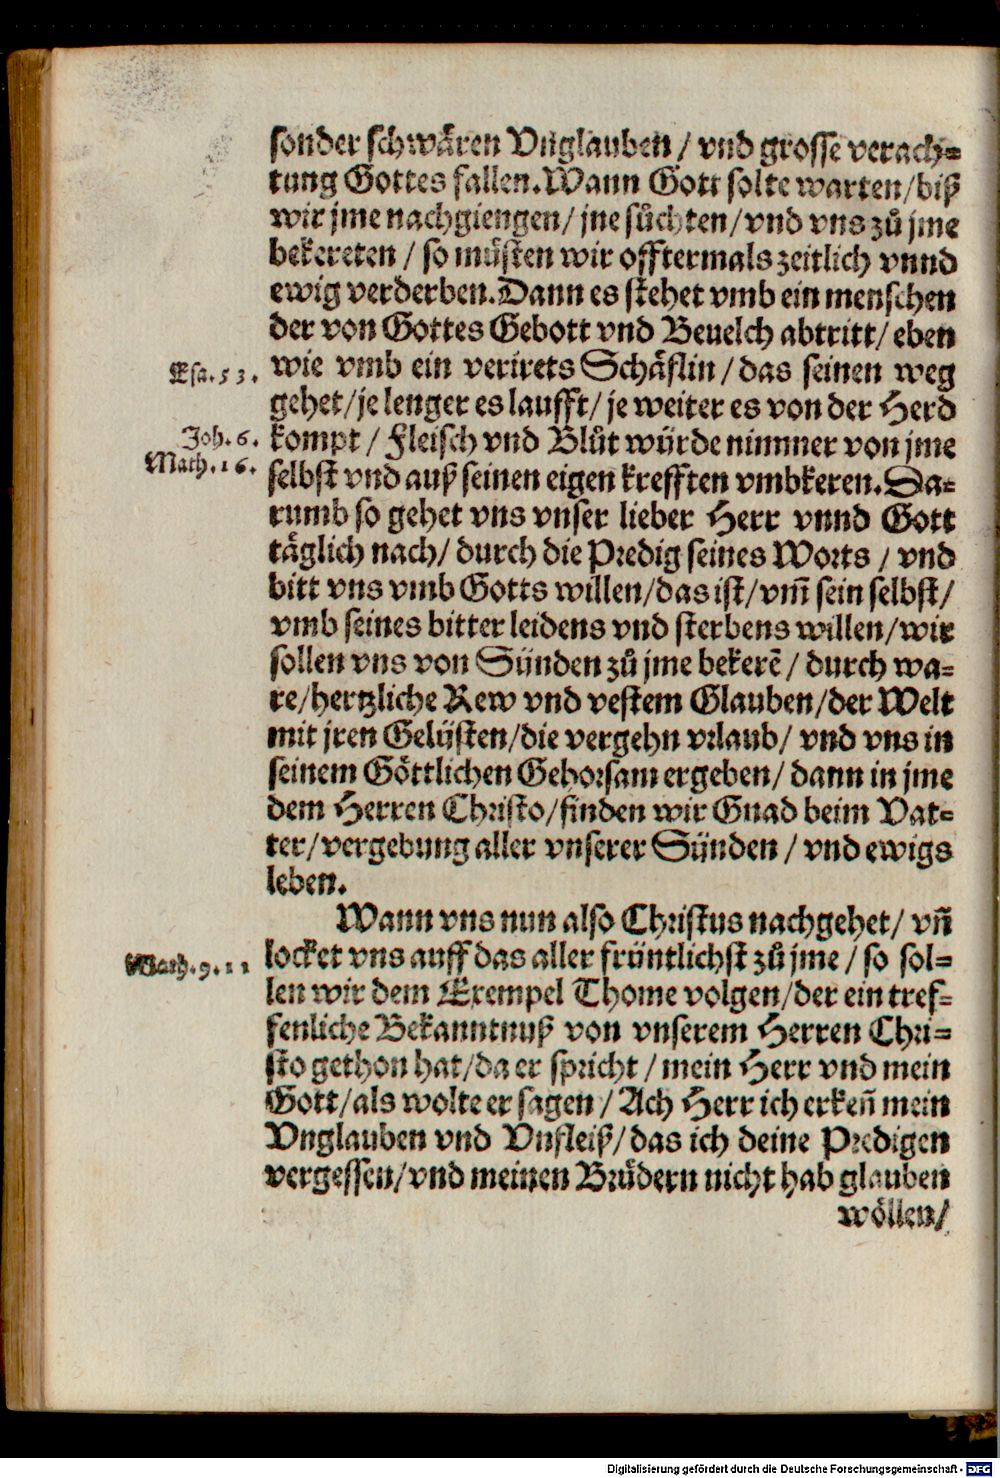 sonder schwären Vnglauben / vnd grosse verach=
tung Gottes fallen. Wann Gott solte warten / biß
wir jme nachgiengen / jne sůchten / vnd vns zů jme
bekereten / so müsten wir offtermals zeitlich vnnd
ewig verderben. Dann es stehet vmb ein menschen
der von Gottes Gebott vnd Beuelch abtritt / eben
Esa. 53. wie vmb ein verirets Schäflin / das seinen weg
gehet / je lenger es laufft / je weiter es von der Herd
Joh. 6. kompt / Fleisch vnd Blůt würde nimmer von jme
Math. 16. selbst vnd auß seinen eigen krefften vmbkeren. Da=
rumb so gehet vns vnser lieber Herr vnnd Gott
täglich nach / durch die Predig seines Worts / vnd
bitt vns vmb Gotts willen / das ist / vm̃ sein selbst /
vmb seines bitter leidens vnd sterbens willen / wir
sollen vns von Sünden zů jme bekerẽ / durch wa=
re / hertzliche Rew vnd vestem Glauben / der Welt
mit jren Gelüsten / die vergehn vrlaub / vnd vns in
seinem Göttlichen Gehorsam ergeben / dann in jme
dem Herren Christo / finden wir Gnad beim Vat=
ter / vergebung aller vnserer Sünden / vnd ewigs
leben.
Wann vns nun also Christus nachgehet / vñ
Math. 9. 11 locket vns auff das aller früntlichst zů jme / so sol=
len wir dem Exempel Thome volgen / der ein tref=
fenliche Bekanntnuß von vnserem Herren Chri=
sto gethon hat / da er spricht / mein Herr vnd mein
Gott / als wolte er sagen / Ach Herr ich erkeñ mein
Vnglauben vnd Vnfleiß / das ich deine Predigen
vergessen / vnd meinen Brüdern nicht hab glauben
wöllen /
Digitalisierung gefördert durch die Deutsche Forschungsgemeinschaft - DFG